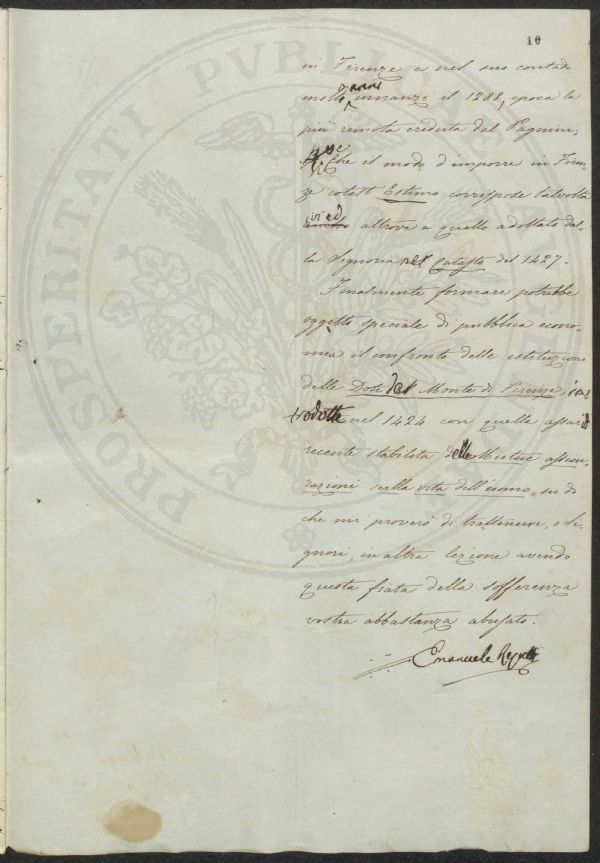 10
in Firenze e nel suo contado
molti anni
innanzi il 1288, epoca la
più remota creduta dal Pagnini;
Che il modo d'imporre in Firen-
ze cotest' Estimo corrispose talvolta
ivi ed altrove a quello adottato dal-
la Signoria nel Catasto del 1427.
Finalmente formare potrebbe
oggetto speciale di pubblica econo-
mia il confronto delle istituzione
delle Doti del Monte di Firenze, in-
trodotte nel 1424 con quella assai
recente stabilita delle Mutue assicu-
razioni sulla vita dell'uomo, su di
che mi proverò di trattenervi, o Si-
gnori, in altra lezione avendo
questa fiata della sofferenza
vostra abbastanza abusato.
Emanuele Repetti
PROSPERITATI PVBLICAE